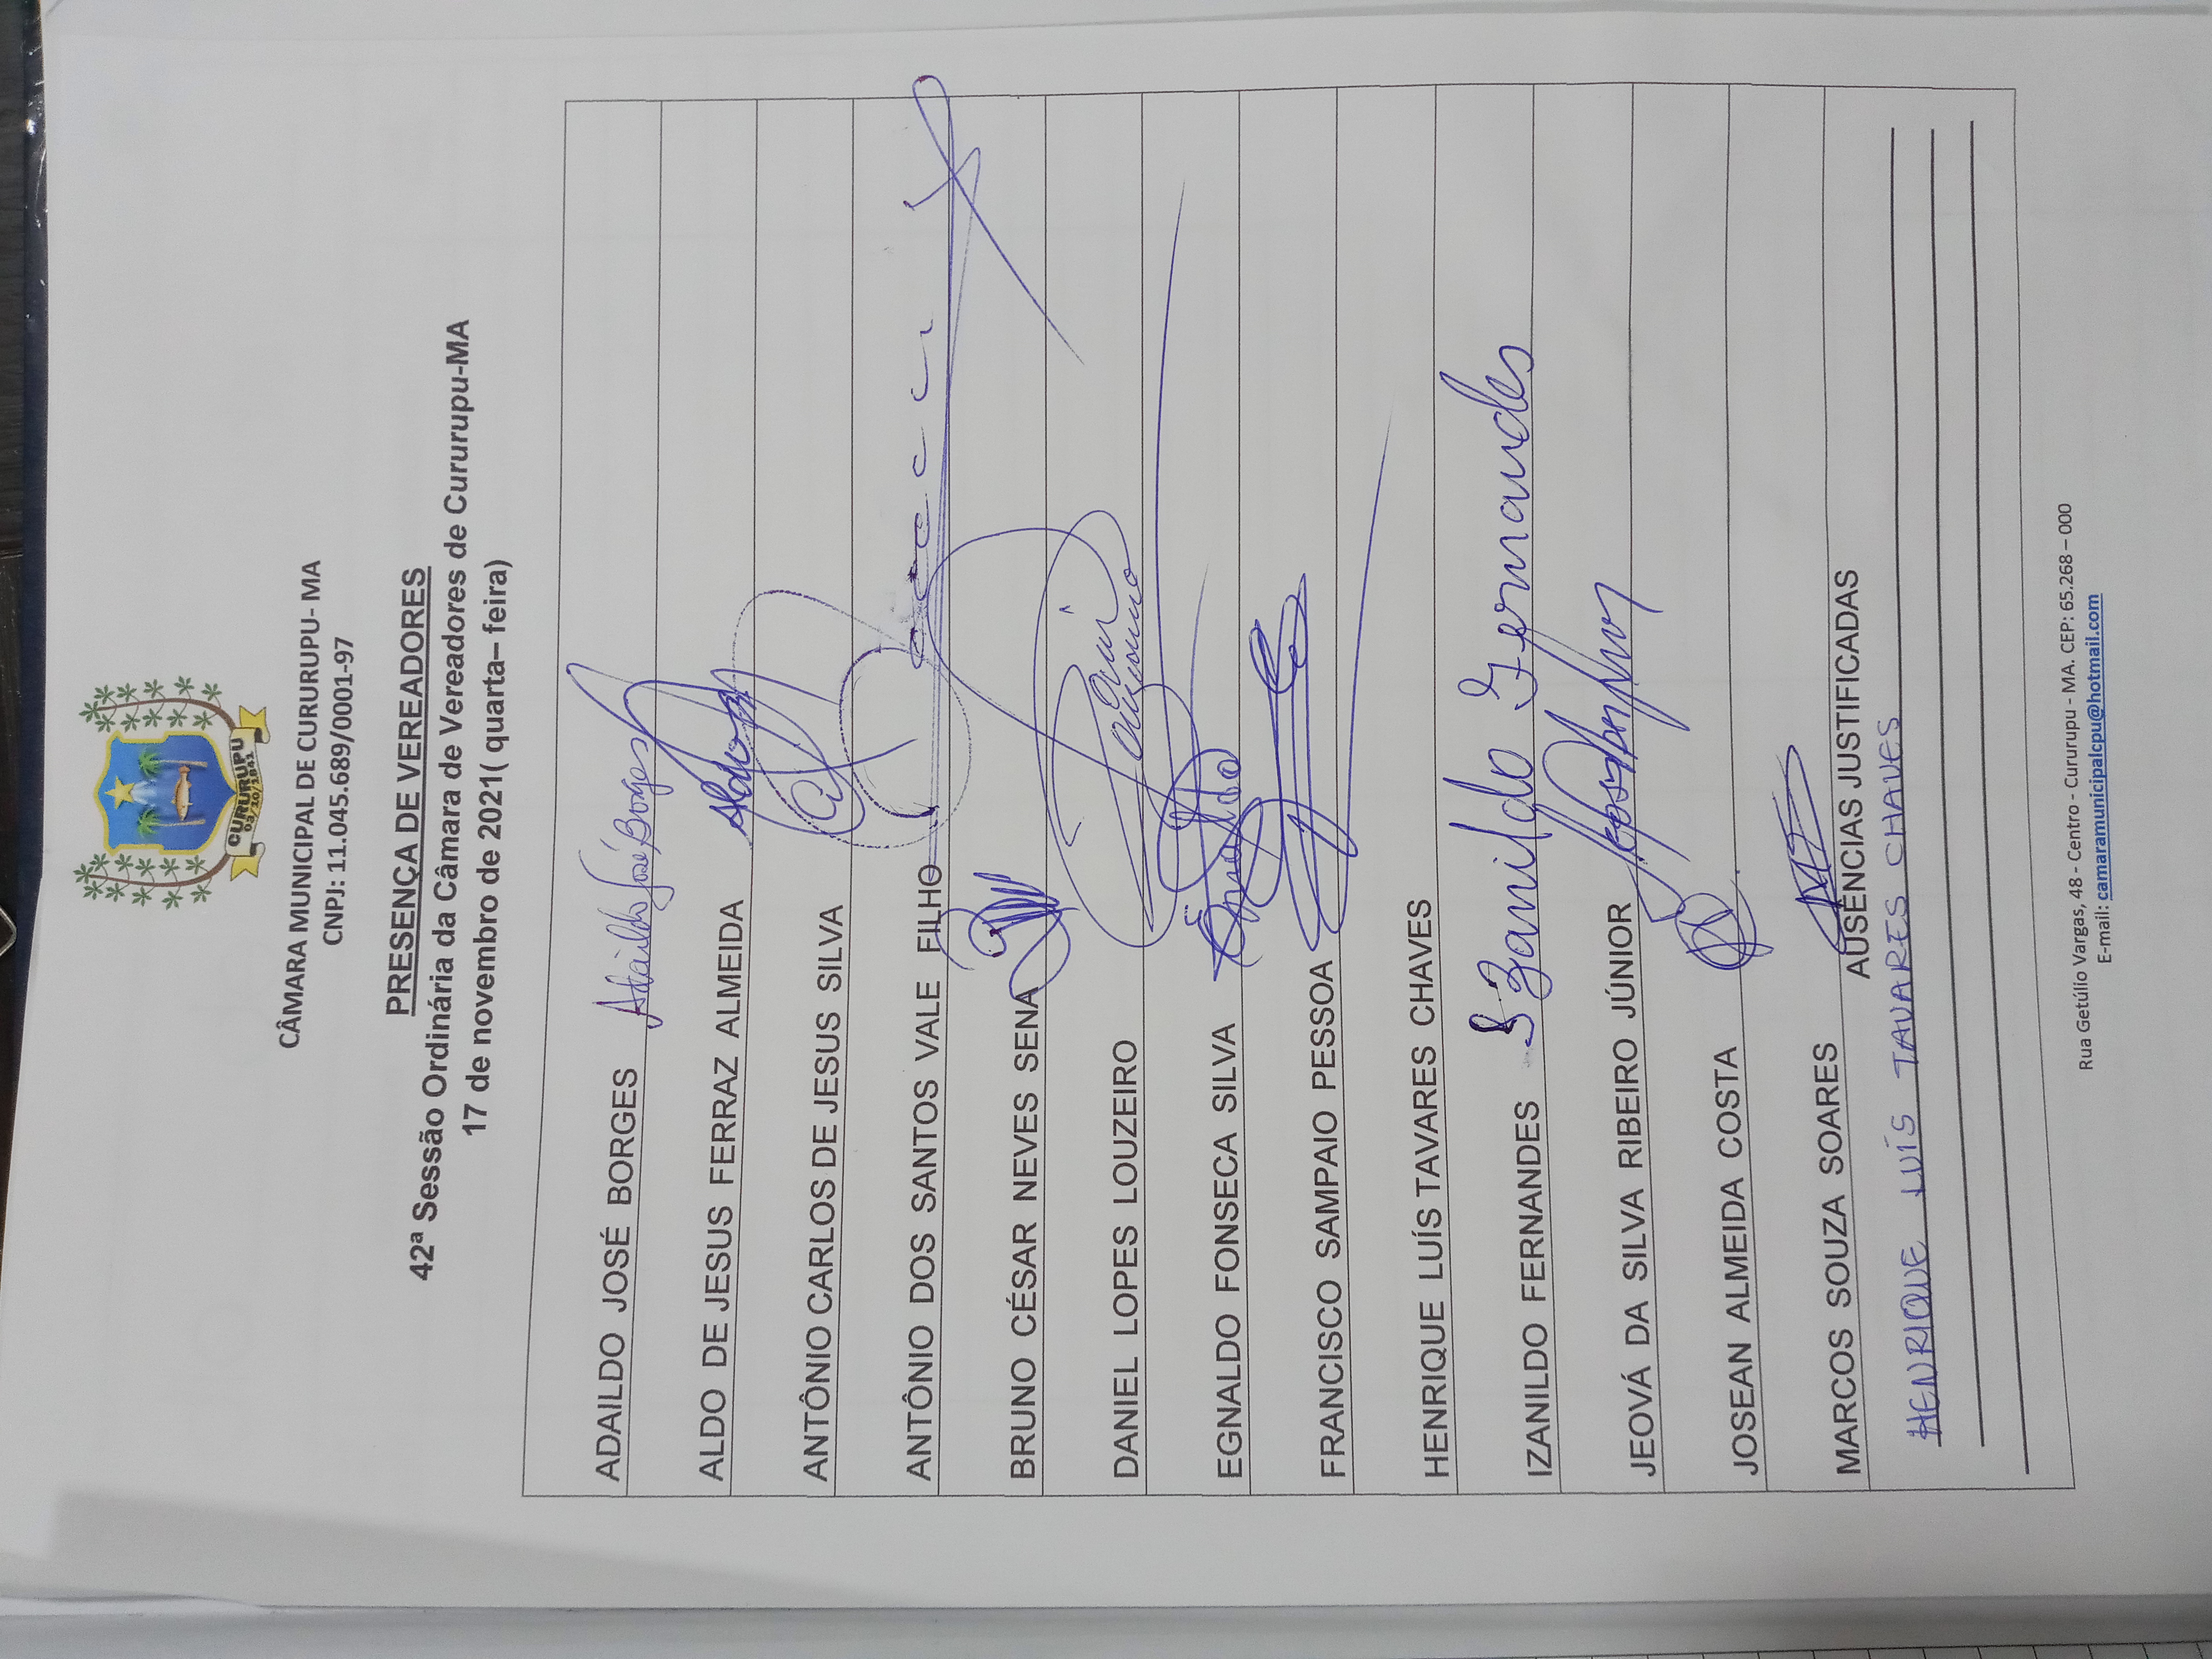 CURURUPU
03/10/1841
CÂMARA MUNICIPAL DE CURURUPU- MA
CNPJ: 11.045.689/0001-97
PRESENÇA DE VEREADORES
42ª Sessão Ordinária da Câmara de Vereadores de Cururupu-MA
17 de novembro de 2021( quarta– feira)
ADAILDO JOSÉ BORGES Adaildo José Borges
ALDO DE JESUS FERRAZ ALMEIDA Aldo
ANTÔNIO CARLOS DE JESUS SILVA
ANTÔNIO DOS SANTOS VALE FILHO
BRUNO CÉSAR NEVES SENA
DANIEL LOPES LOUZEIRO
EGNALDO FONSECA SILVA
FRANCISCO SAMPAIO PESSOA
HENRIQUE LUÍS TAVARES CHAVES
IZANILDO FERNANDES Izanildo Fernandes
JEOVÁ DA SILVA RIBEIRO JÚNIOR
JOSEAN ALMEIDA COSTA
MARCOS SOUZA SOARES
AUSÊNCIAS JUSTIFICADAS
HENRIQUE LUÍS TAVARES CHAVES
Rua Getúlio Vargas, 48 - Centro - Cururupu - MA. CEP: 65.268 – 000
E-mail: camaramunicipalcpu@hotmail.com